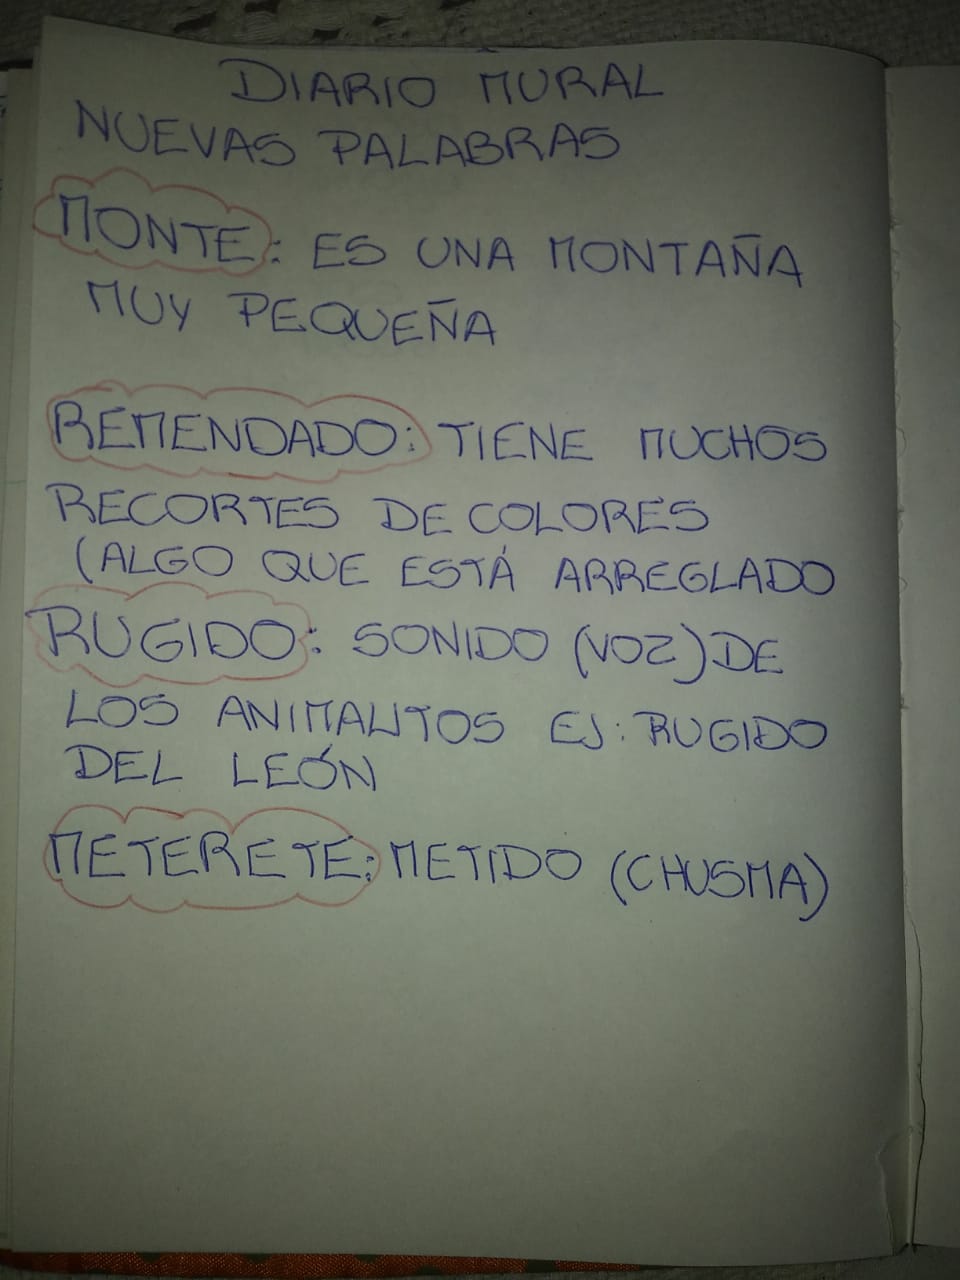 DIARIO MURAL
NUEVAS PALABRAS
MONTE: ES UNA MONTAÑA
MUY PEQUEÑA
REMENDADO: TIENE MUCHOS
RECORTES DE COLORES
(ALGO QUE ESTÁ ARREGLADO
RUGIDO: SONIDO (VOZ) DE
LOS ANIMALITOS EJ: RUGIDO
DEL LEÓN
METERETE: METIDO (CHUSMA)